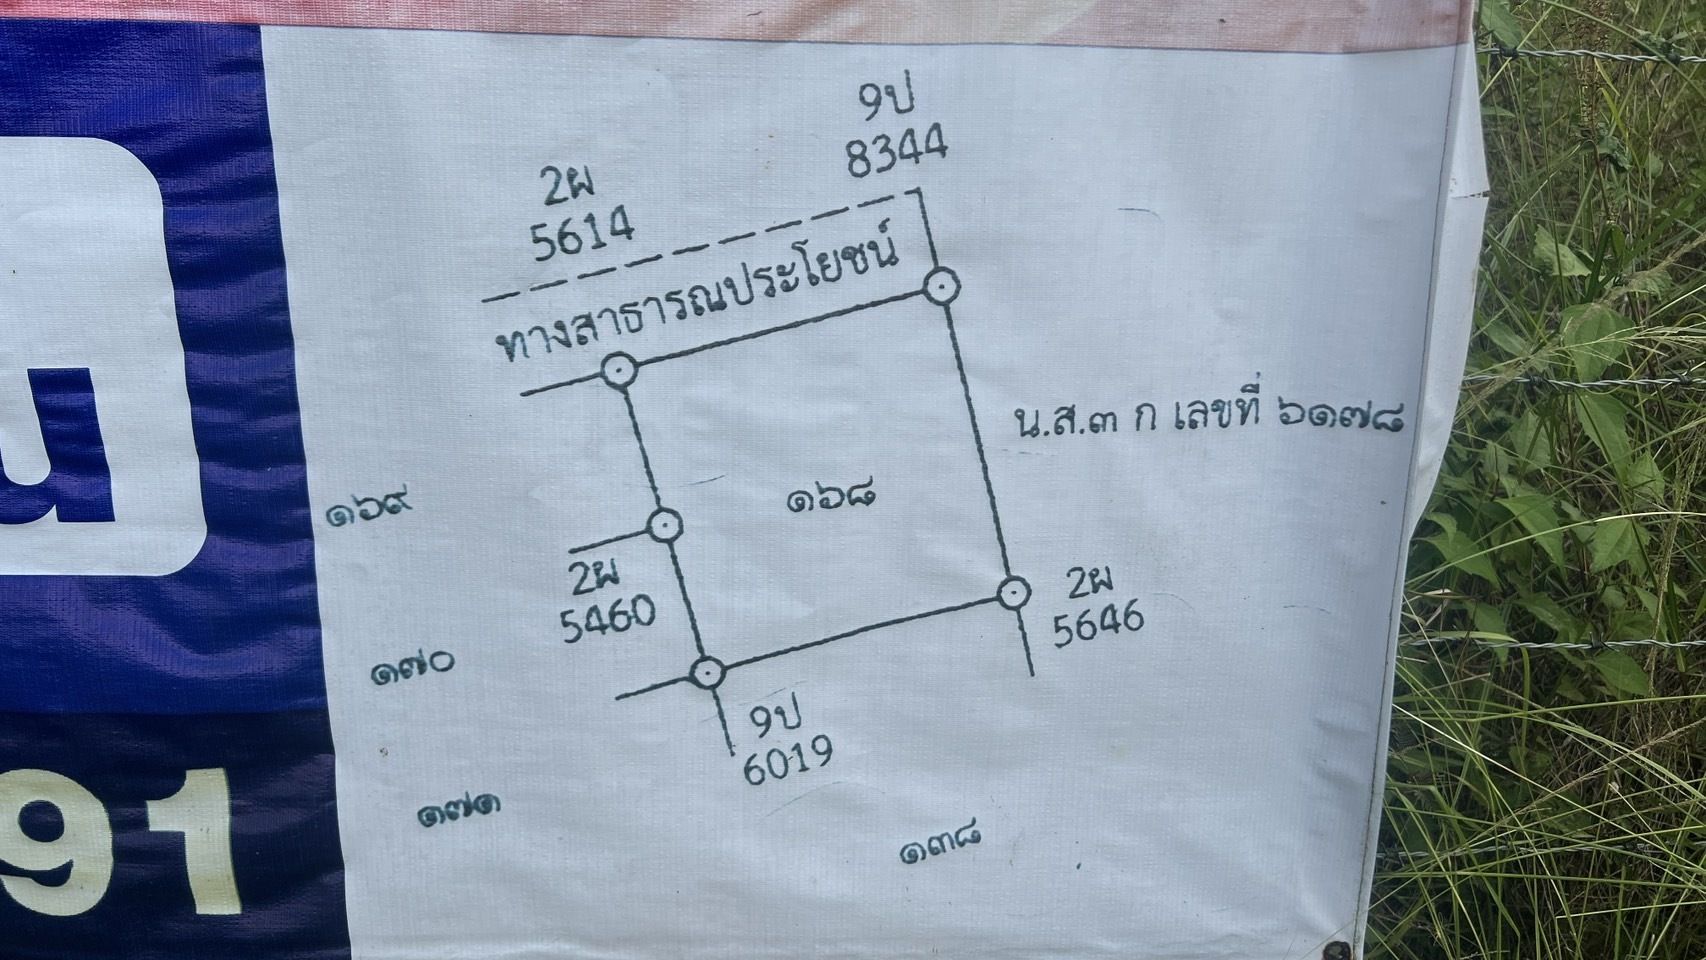 9ป
8344
2ผ
5614
ทางสาธารณประโยชน์
น.ส.๓ ก เลขที่ ๖๑๗๘
๑๖๘
๑๖๙
2ผ
5460
2ผ
5646
๑๗๐
9ป
6019
๑๗๑
๑๓๘
น
91